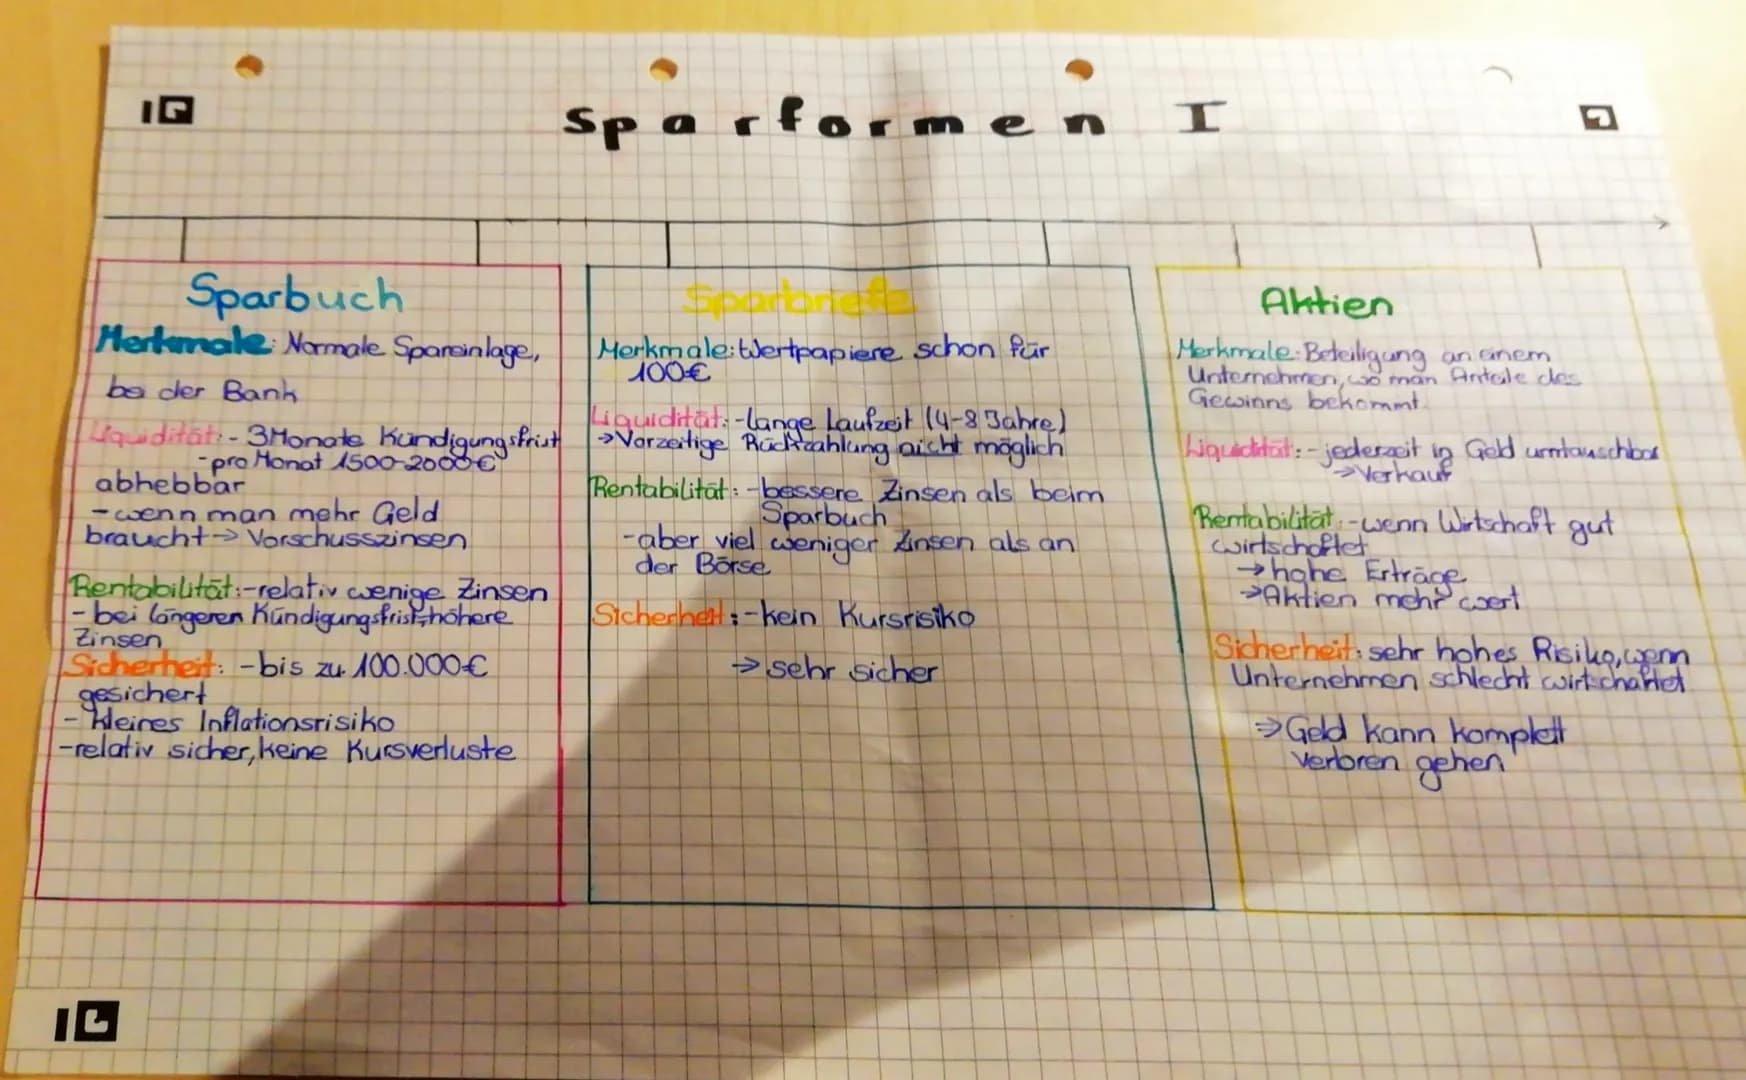 Sparformen I
Sparbuch
Merkmale: Normale Spareinlage,
be der Bank
Liquidität: - 3 Monate Kündigungsfrist
- pro Monat 1500-2000€
abhebbar
- wenn man mehr Geld
braucht → Vorschusszinsen
Rentabilität: - relativ wenige Zinsen
- bei längeren Kündigungsfrist, höhere
Zinsen
Sicherheit: - bis zu 100.000€
gesichert
- kleines Inflationsrisiko
- relativ sicher, keine Kursverluste
Sparbriefe
Merkmale: Wertpapiere schon für
100€
Liquidität: - lange Laufzeit (4-8 Jahre)
→ Vorzeitige Rückzahlung nicht möglich
Rentabilität: - bessere Zinsen als beim
Sparbuch
- aber viel weniger Zinsen als an
der Börse
Sicherheit: - kein Kursrisiko
→ sehr sicher
Aktien
Merkmale: Beteiligung an einem
Unternehmen, wo man Anteile des
Gewinns bekommt.
Liquidität: - jederzeit in Geld umtauschbar
→ Verkauf
Rentabilität: - wenn Wirtschaft gut
wirtschaftet
→ hohe Erträge
→ Aktien mehr wert
Sicherheit: sehr hohes Risiko, wenn
Unternehmen schlecht wirtschaftet
→ Geld kann komplett
verloren gehen